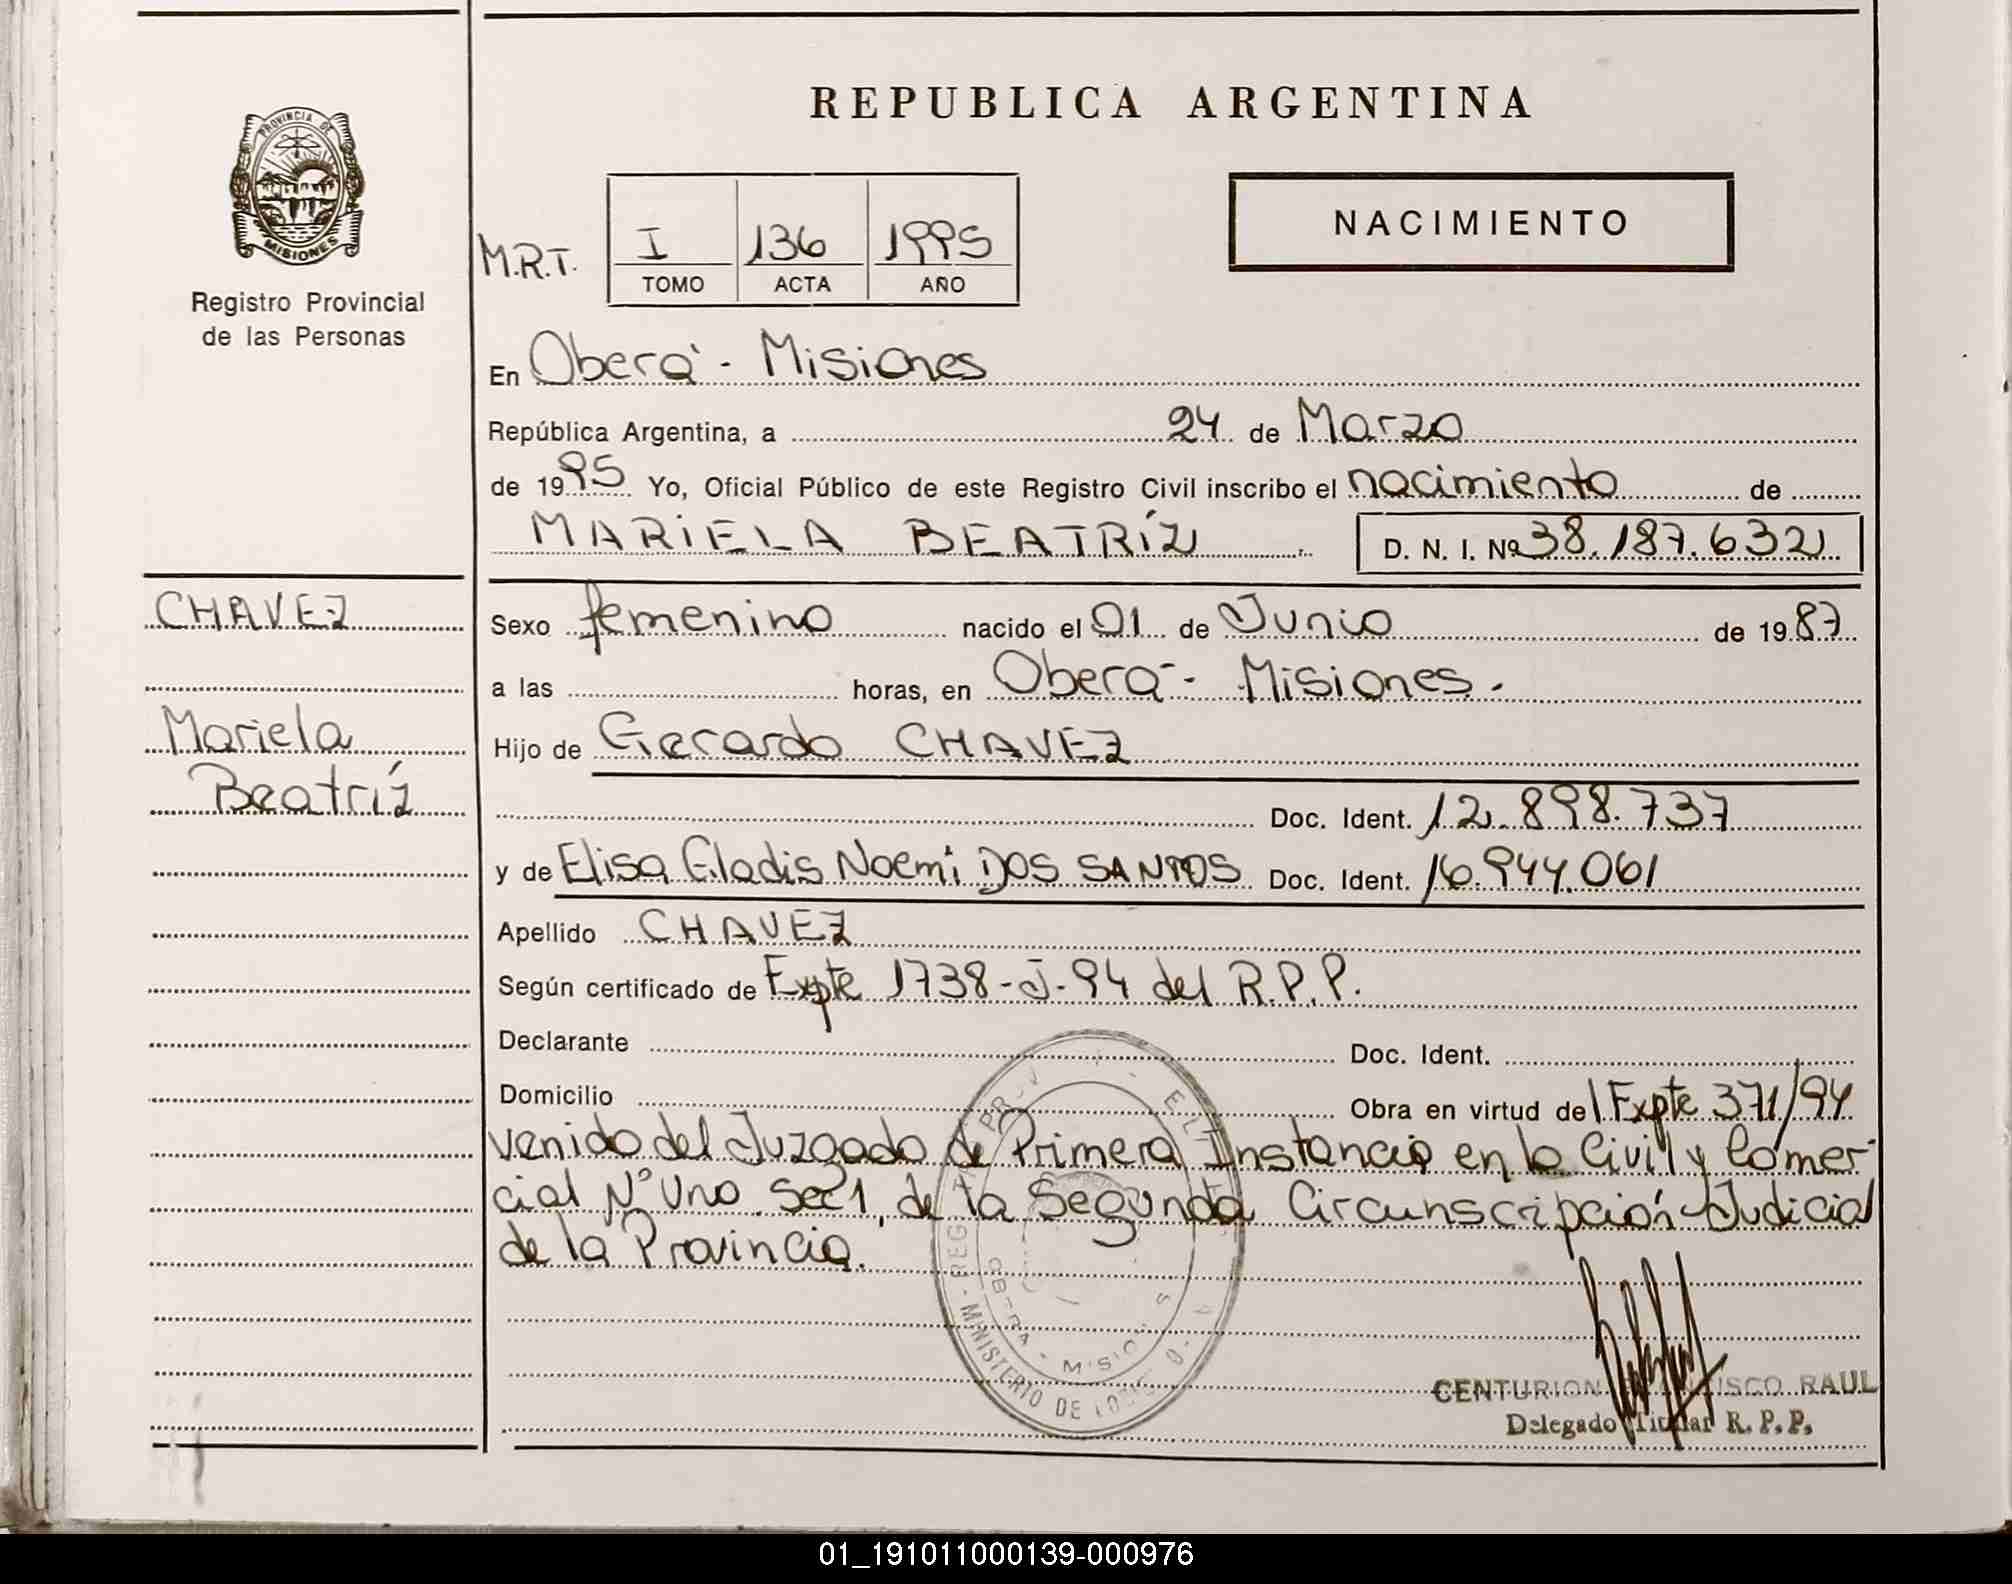 PROVINCIA DE
MISIONES
Registro Provincial
de las Personas
REPUBLICA ARGENTINA
NACIMIENTO
M.R.T. I 136 1995
TOMO ACTA AÑO
En Oberá - Misiones
República Argentina, a 24 de Marzo
de 1995 Yo, Oficial Público de este Registro Civil inscribo el nacimiento de
MARIELA BEATRÍZ D. N. I. Nº 38.187.632
CHAVEZ
Mariela
Beatríz
Sexo femenino nacido el 01 de Junio de 1987
a las horas, en Oberá - Misiones.
Hijo de Gerardo CHAVEZ
Doc. Ident. 12.898.737
y de Elisa Gladis Noemi DOS SANTOS Doc. Ident. 16.944.061
Apellido CHAVEZ
Según certificado de Expte 1738-J-94 del R.P.P.
Declarante Doc. Ident.
Domicilio Obra en virtud del Expte 371/94
venido del Juzgado de Primera Instancia en lo Civil y Comer-
cial Nº Uno Sec 1, de la Segunda Circunscripción Judicial
de la Provincia.
MINISTERIO DE
CENTURION RAUL
Delegado Titular R. P. P.
01_191011000139-000976